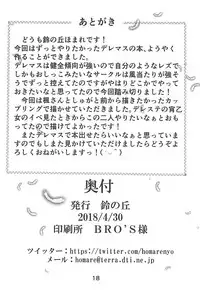 あとがき
どうも鈴の丘ほまれです！
今回はずっとやりたかったデレマスの本、ようやく
作ることができました。
デレマスは健全傾向が強いので自分のようなレズで
しかもおしっこみたいなサークルは風当たりが強そ
うでずっと控えてたのですがやはりどこかでやって
おきたいなと思ってたので今回踏み切りました！
今回は楓さんとしゅがと前から描きたかったカッ
プリングで描かせていただきました。デレステの宵乙
女のイベ見たときからこの二人やりたいなぁとおも
ってたので嬉しいです。
またデレマスで本出せたらいいなぁと思っていま
すのでもしまた見かけることがありましたらどうぞよ
ろしくおねがいしますっ！（宣伝）
奥付
発行 鈴の丘
2018/4/30
印刷所 BRO'S様
ツイッター：https://twitter.com/homarenyo
メール：homare@terra.dti.ne.jp
18